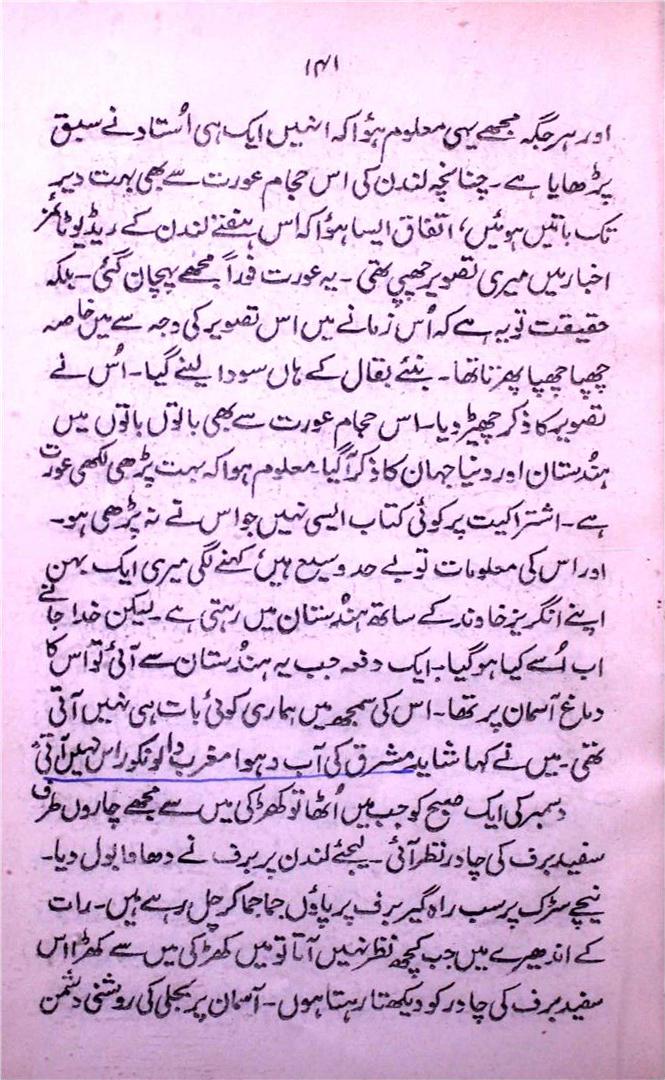 ۱۴۱
اور ہر جگہ مجھے یہی معلوم ہؤا کہ انہیں ایک ہی اُستاد نے سبق
پڑھایا ہے۔ چنانچہ لندن کی اس حجام عورت سے بھی بہت دیر
تک باتیں ہوئیں، اتفاق ایسا ہؤا کہ اس ہفتے لندن کے ریڈیو ٹائمز
اخبار میں میری تصویر چھپی تھی۔ یہ عورت فوراً مجھے پہچان گئی۔ بلکہ
حقیقت تو یہ ہے کہ اُس زمانے میں اس تصویر کی وجہ سے میں خاصہ
چھپا چھپا پھرتا تھا۔ بنئے بقال کے ہاں سودا لینے گیا۔ اُس نے
تصویر کا ذکر چھیڑ دیا۔ اس حجام عورت سے بھی باتوں باتوں میں
ہندُستان اور دنیا جہان کا ذکر آگیا معلوم ہوا کہ بہت پڑھی لکھی عورت
ہے۔ اشتراکیت پر کوئی کتاب ایسی نہیں جو اس نے نہ پڑھی ہو۔
اور اس کی معلومات تو بے حد وسیع ہیں، کہنے لگی میری ایک بہن
اپنے انگریز خاوند کے ساتھ ہندُستان میں رہتی ہے۔ لیکن خدا جانے
اب اُسے کیا ہو گیا۔ ایک دفعہ جب یہ ہندُستان سے آئی تو اس کا
دماغ آسمان پر تھا۔ اس کی سمجھ میں ہماری کوئی بات ہی نہیں آتی
تھی۔ میں نے کہا شاید مشرق کی آب و ہوا مغرب والونکو راس نہیں آتی
دسمبر کی ایک صبح کو جب میں اُٹھا تو کھڑکی میں سے مجھے چاروں طرف
سفید برف کی چادر نظر آئی۔ لیجئے لندن پر برف نے دھاوا بول دیا۔
نیچے سڑک پر سب راہ گیر برف پر پاؤں جما جما کر چل رہے ہیں۔ رات
کے اندھیرے میں جب کچھ نظر نہیں آتا تو میں کھڑکی میں سے کھڑا اس
سفید برف کی چادر کو دیکھتا رہتا ہوں۔ آسمان پر بجلی کی روشنی دشمن